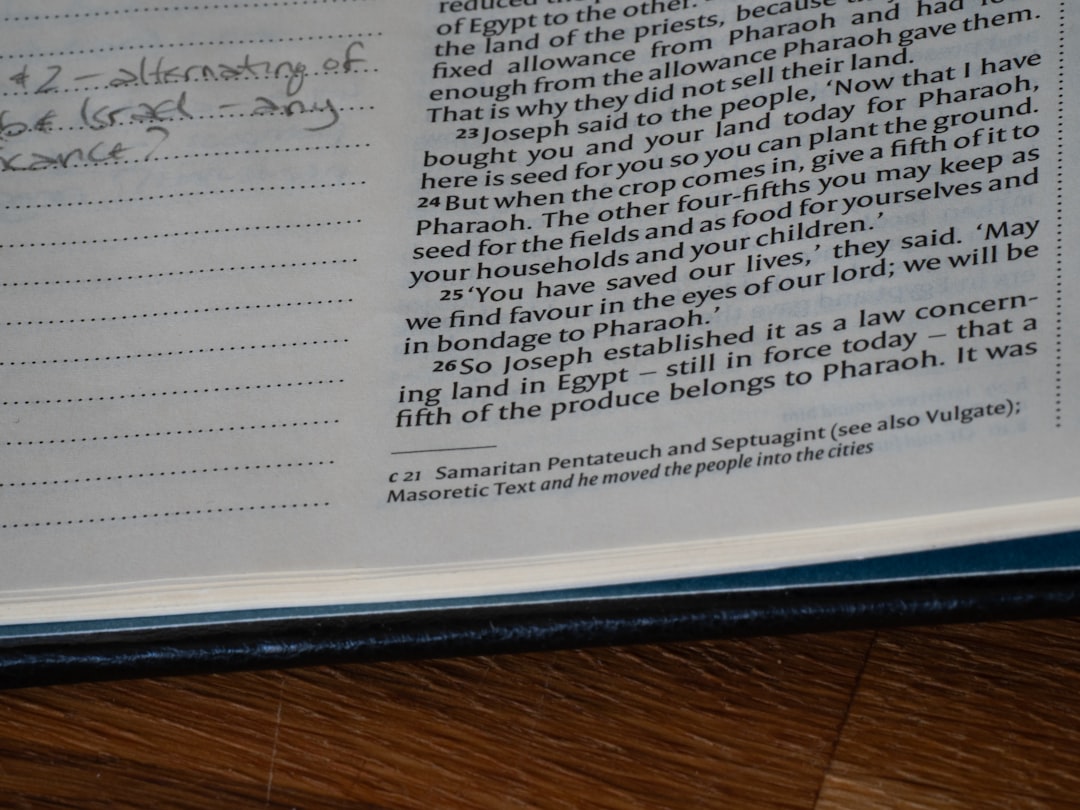 & 2 - alternating of
Israel - any
?
reduced the
of Egypt to the other.
the land of the priests, because
fixed allowance from Pharaoh and had
enough from the allowance Pharaoh gave them.
That is why they did not sell their land.
23 Joseph said to the people, ‘Now that I have
bought you and your land today for Pharaoh,
here is seed for you so you can plant the ground.
24 But when the crop comes in, give a fifth of it to
Pharaoh. The other four-fifths you may keep as
seed for the fields and as food for yourselves and
your households and your children.’
25 ‘You have saved our lives,’ they said. ‘May
we find favour in the eyes of our lord; we will be
in bondage to Pharaoh.’
26 So Joseph established it as a law concern-
ing land in Egypt – still in force today – that a
fifth of the produce belongs to Pharaoh. It was
c 21 Samaritan Pentateuch and Septuagint (see also Vulgate);
Masoretic Text and he moved the people into the cities